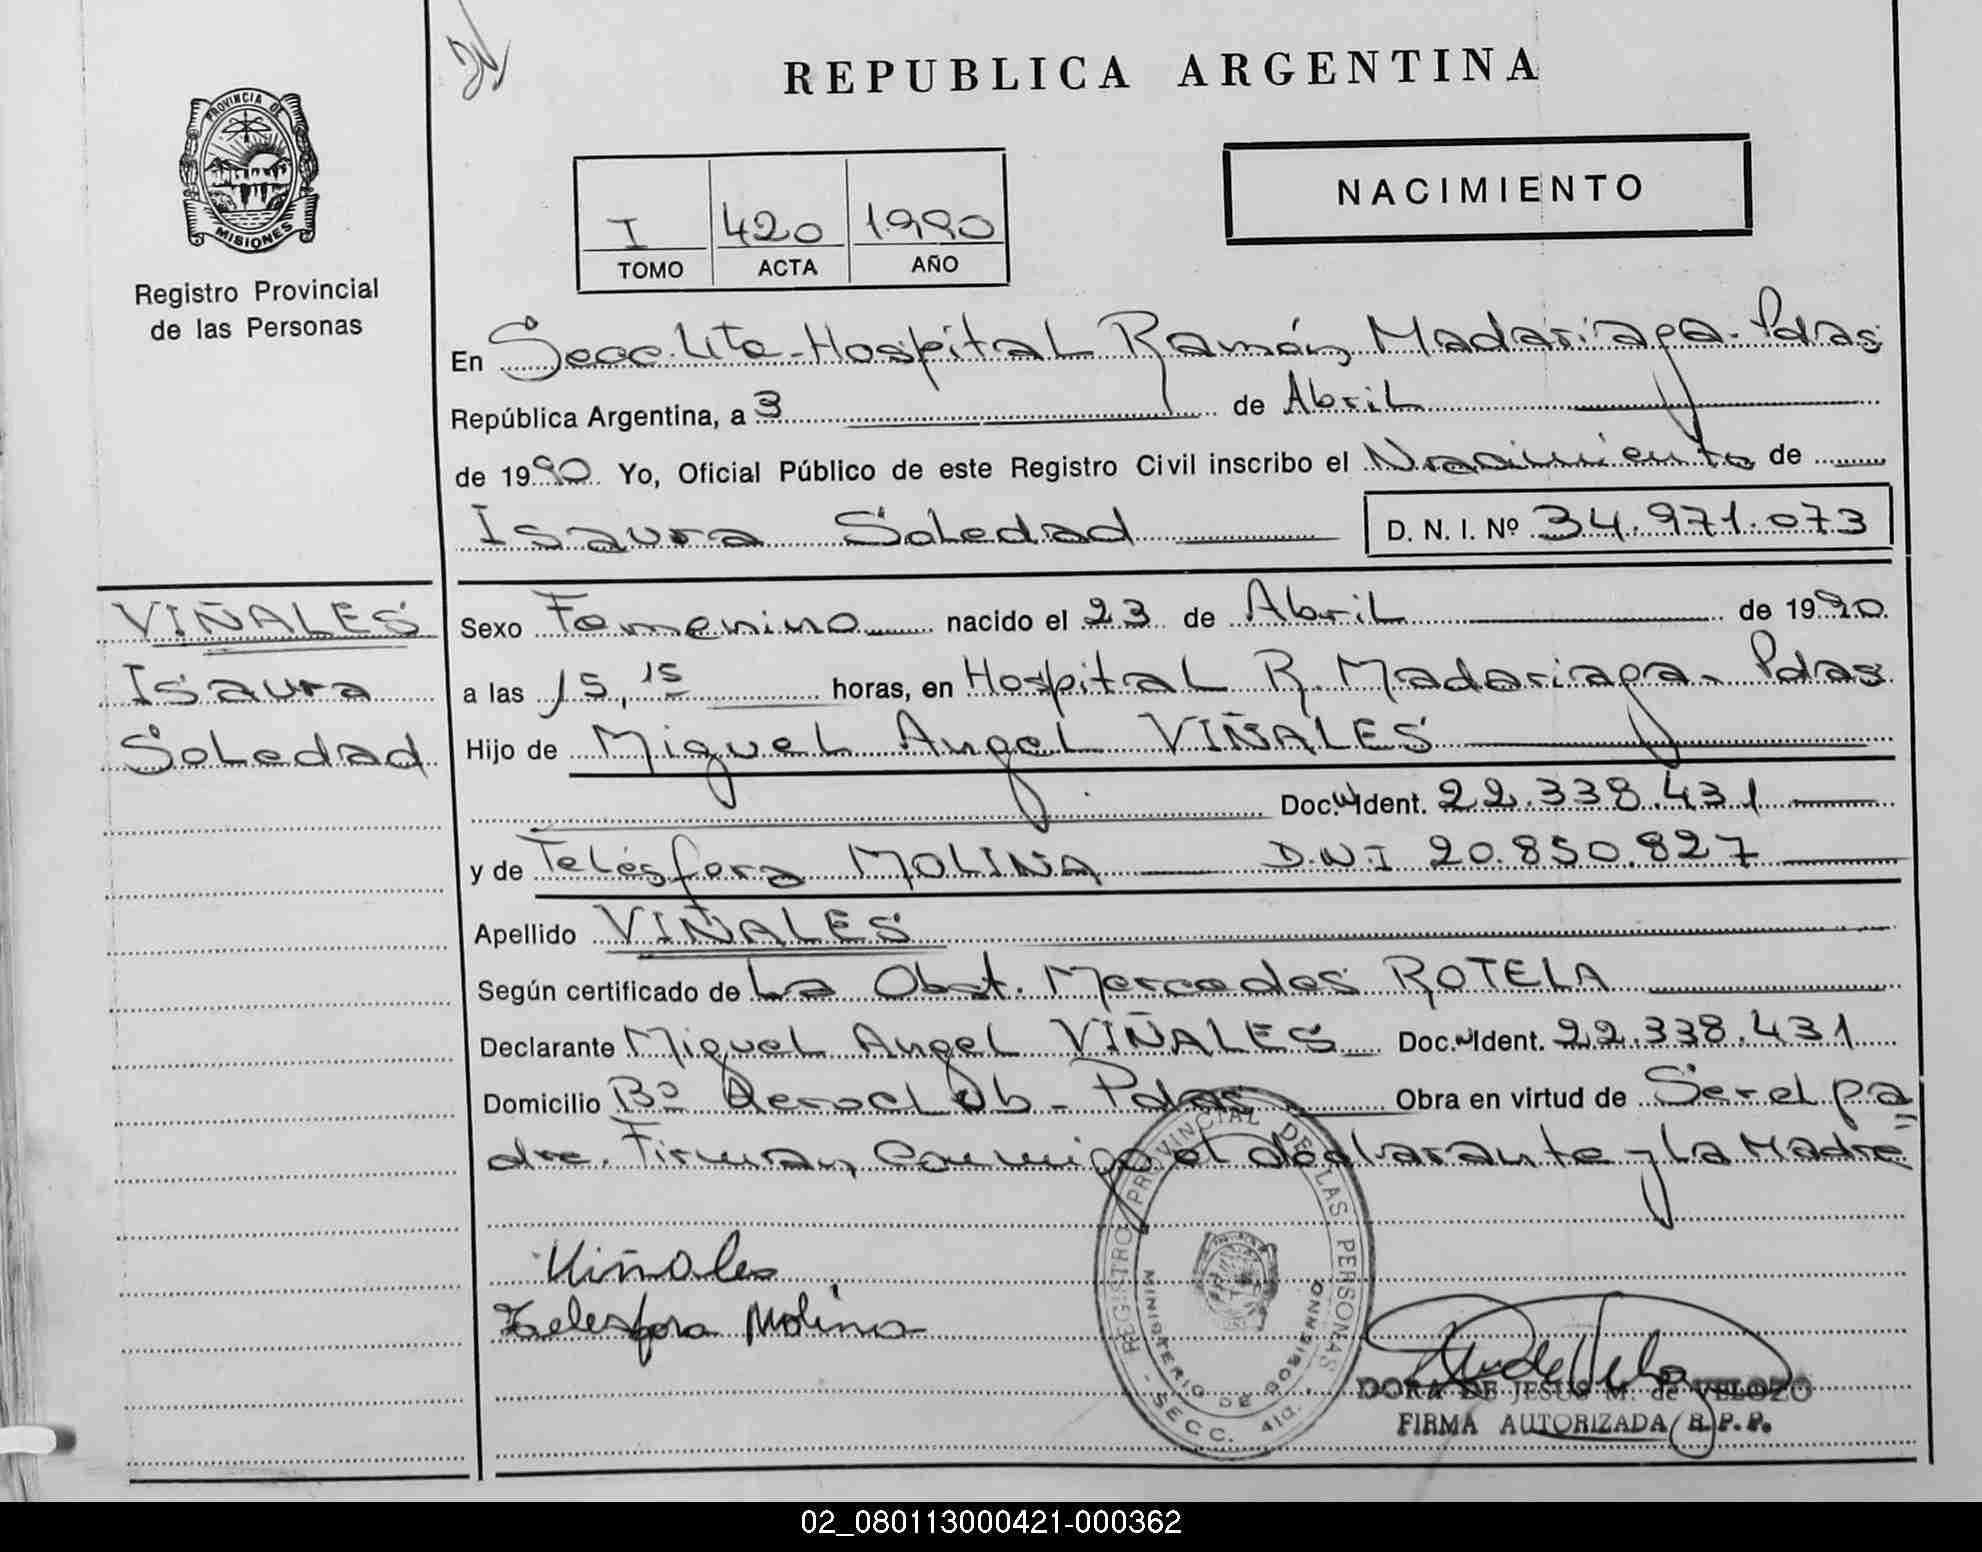 REPUBLICA ARGENTINA
PROVINCIA DE
MISIONES
Registro Provincial
de las Personas
I 420 1990
TOMO ACTA AÑO
NACIMIENTO
En Secc. 4ta - Hospital Ramón Madariaga - Pdas
República Argentina, a 3 de Abril
de 1990 Yo, Oficial Público de este Registro Civil inscribo el Nacimiento de
Isaura Soledad D. N. I. Nº 34.971.073
VIÑALES
Isaura
Soledad
Sexo Femenino nacido el 23 de Abril de 1990
a las 15,15 horas, en Hospital R. Madariaga - Pdas
Hijo de Miguel Angel VIÑALES
Doc. Ident. 22.338.431
y de Telésfora MOLINA D.N.I 20.850.827
Apellido VIÑALES
Según certificado de La Obst. Mercedes ROTELA
Declarante Miguel Angel VIÑALES Doc. Ident. 22.338.431
Domicilio Bº Aeroclub - Pdas Obra en virtud de Ser el pa
dre. Firman conmigo el declarante y la Madre
Viñales
Telesfora Molina
REGISTRO PROVINCIAL DE LAS PERSONAS
MINISTERIO DE GOBIERNO
- SECC. 4ta. -
DORA DE JESUS M. de VELOZO
FIRMA AUTORIZADA R.P.P.
02_080113000421-000362